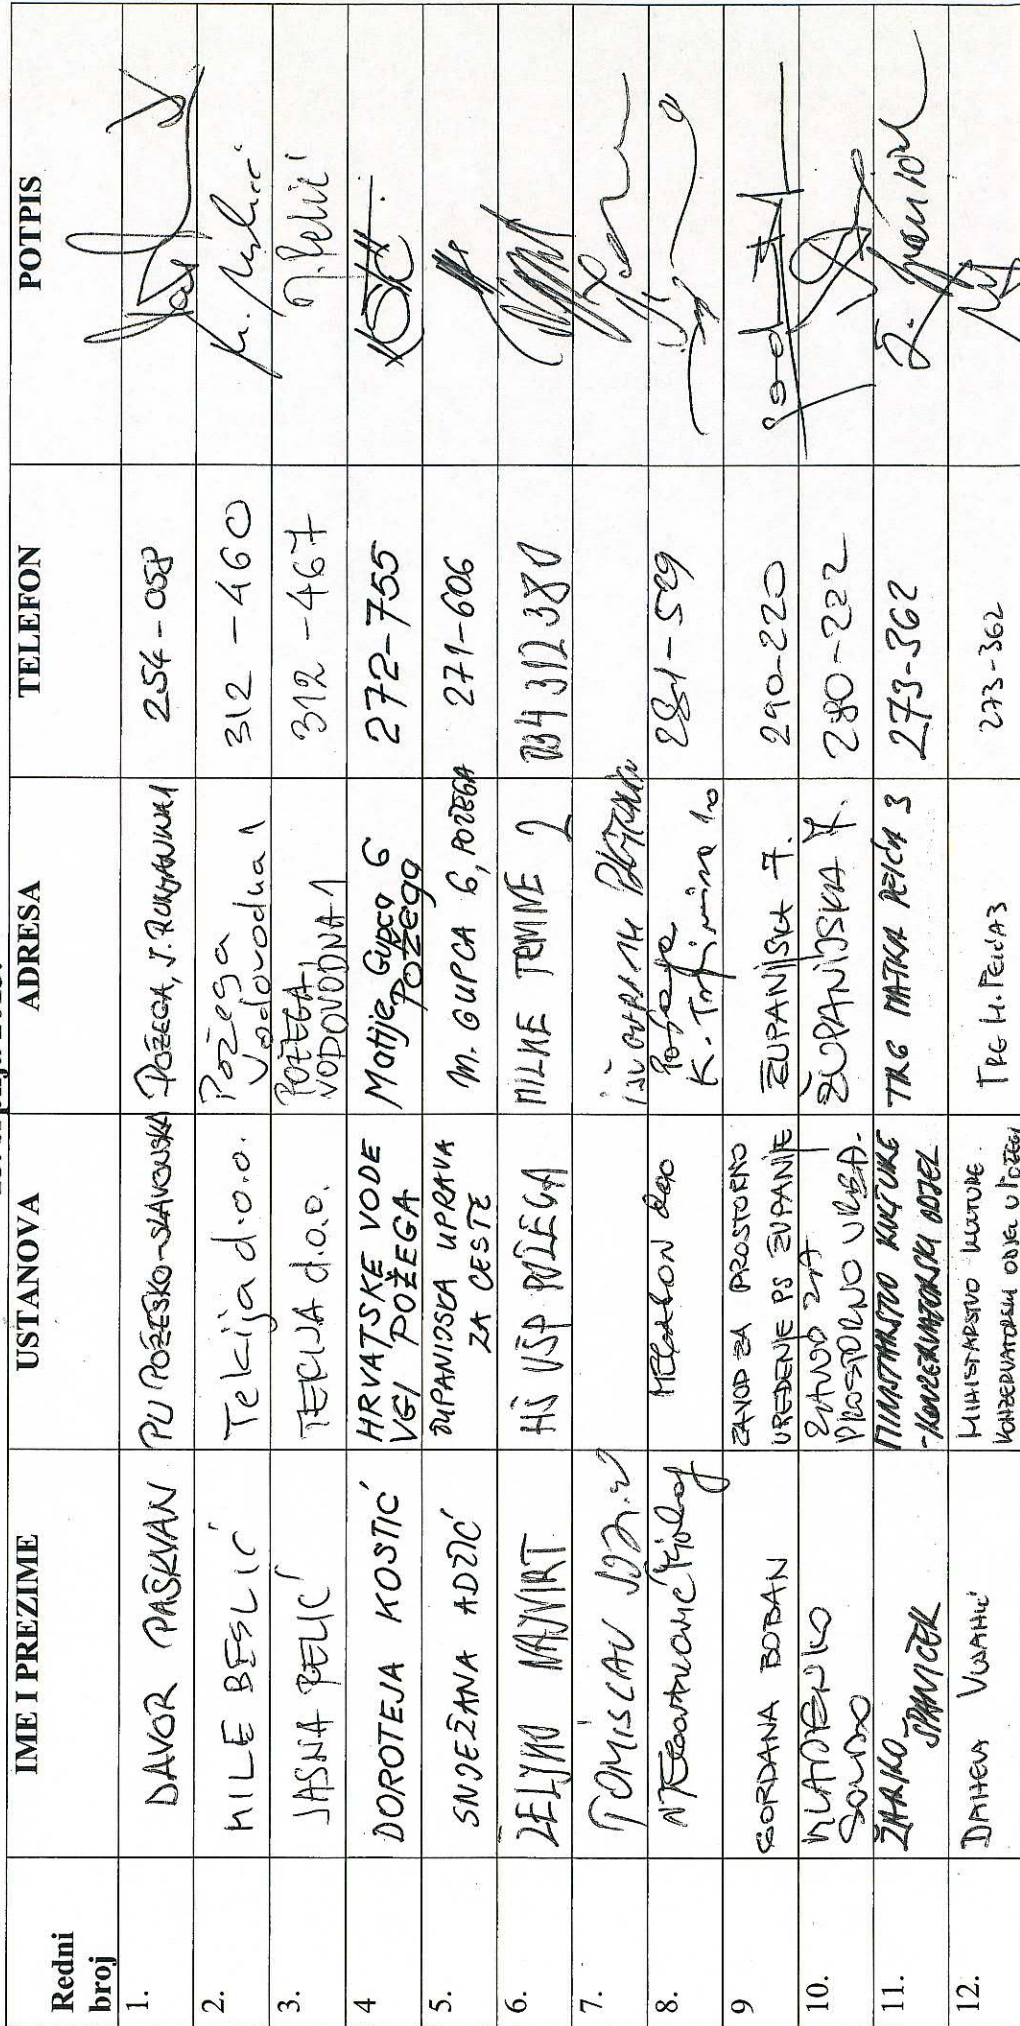 Redni broj IME I PREZIME USTANOVA ADRESA TELEFON POTPIS
1. DAVOR PAŠKVAN PU POŽEŠKO-SLAVONSKA POŽEGA, J. RUNJANINA 1 254-058
2. MILE BESLIĆ Tekija d.o.o. Požega Vodovodna 1 312-460
3. JASNA PELIĆ TEKIJA d.o.o. POŽEGA, VODOVODNA 1 312-467 J. Pelić
4 DOROTEJA KOSTIĆ HRVATSKE VODE VGI POŽEGA Matije Gupca 6 Požega 272-755
5. SNJEŽANA ADŽIĆ ŽUPANIJSKA UPRAVA ZA CESTE M. GUPCA 6, POŽEGA 271-606
6. ŽELJKO NAJVIRT HŠ UŠP POŽEGA MILKE TRNINE 2 034 312 380
7. TOMISLAV
8. Požega K. 10 281-529
9 GORDANA BOBAN ZAVOD ZA PROSTORNO UREĐENJE PS ŽUPANIJE ŽUPANIJSKA 7. 290-220
10. MLADENKO SOLDO ZAVOD ZA PROSTORNO ŽUPANIJSKA 7. 280-222
11. ŽARKO ŠPANIČEK MINISTARSTVO KULTURE - KONZERVATORSKI ODJEL TRG MATKA PEIĆA 3 273-362
12. MINISTARSTVO KULTURE KONZERVATORSKI ODJEL U POŽEGI TRG M. PEIĆA 3 273-362